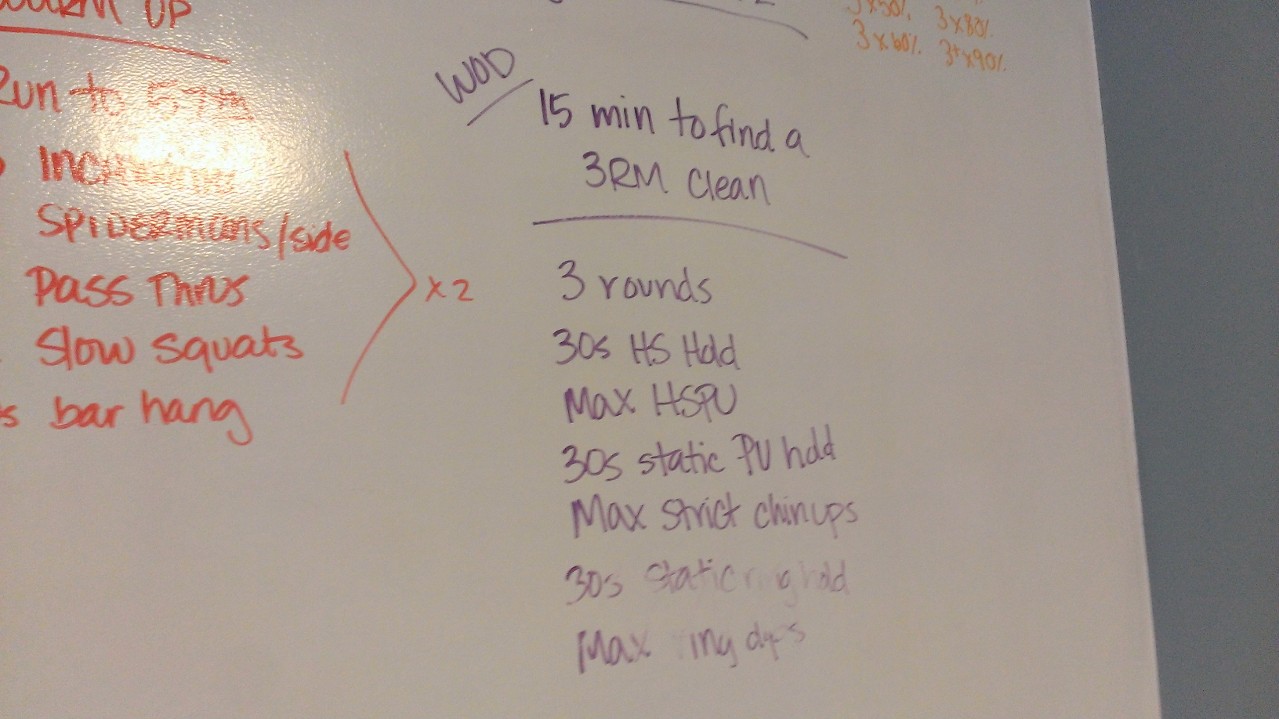 WARM UP
Run to
Spidermans/side
Pass Thrus
Slow squats
bar hang
x2
WOD
15 min to find a
3RM clean
3 rounds
30s HS Hold
Max HSPU
30s static PU hold
Max strict chinups
30s static ring hold
Max ring dips
3x50% 3x80%
3x60% 3+x90%